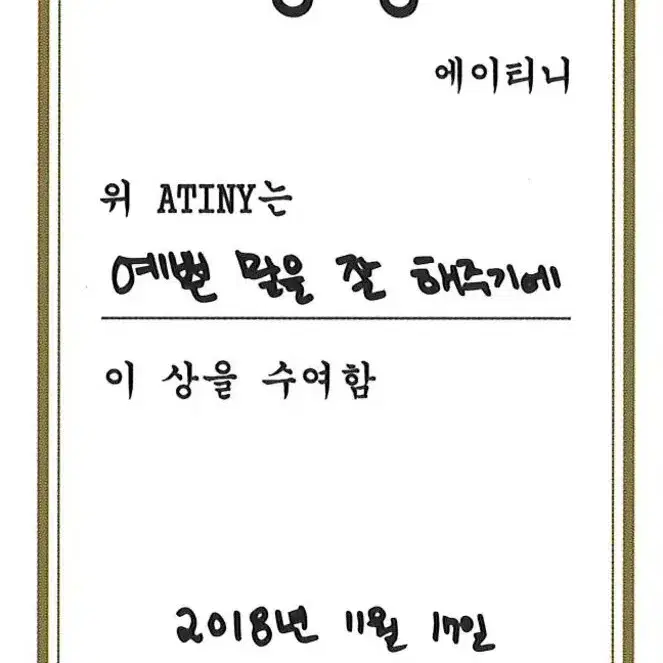 에이티니
위 ATINY는
예쁜 말을 잘 해주기에
이 상을 수여함
2018년 11월 17일